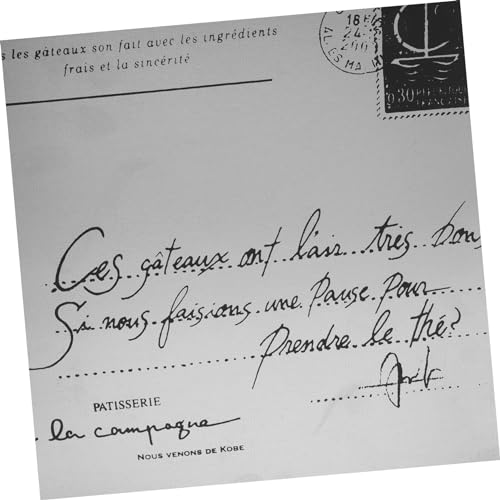 les gâteaux son fait avec les ingrédients
frais et la sincérité
18 H
24
0.30
FRANÇAISE
Ces gâteaux ont l'air très bon
Si nous faisions une Pause Pour
Prendre le thé?
PATISSERIE
la campagne
NOUS VENONS DE KOBE